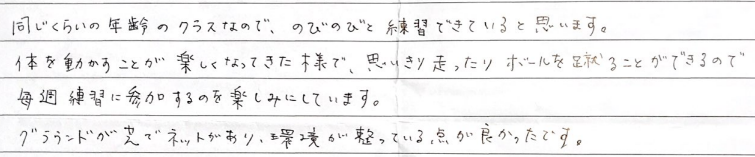 同じくらいの年齢のクラスなので、のびのびと練習できていると思います。
体を動かすことが楽しくなってきた様で、思いきり走ったりボールを蹴ることができるので
毎週練習に参加するのを楽しみにしています。
グラウンドが芝でネットがあり、環境が整っている点が良かったです。